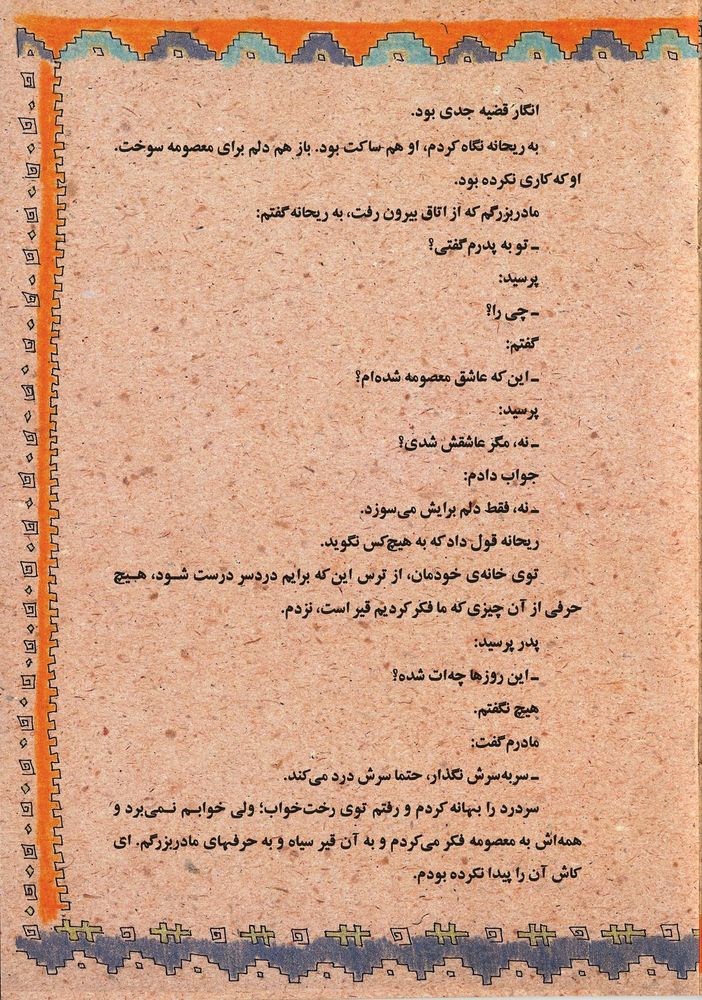 انگار قضیه جدی بود.
به ریحانه نگاه کردم، او هم ساکت بود. باز هم دلم برای معصومه سوخت.
او که کاری نکرده بود.
مادربزرگم که از اتاق بیرون رفت، به ریحانه گفتم:
ـ تو به پدرم گفتی؟
پرسید:
ـ چی را؟
گفتم:
ـ این که عاشق معصومه شده‌ام؟
پرسید:
ـ نه، مگر عاشقش شدی؟
جواب دادم:
ـ نه، فقط دلم برایش می‌سوزد.
ریحانه قول داد که به هیچ‌کس نگوید.
توی خانه‌ی خودمان، از ترس این که برایم دردسر درست شود، هیچ
حرفی از آن چیزی که ما فکر کردیم قیر است، نزدم.
پدر پرسید:
ـ این روزها چه‌ات شده؟
هیچ نگفتم.
مادرم گفت:
ـ سربه‌سرش نگذار، حتما سرش درد می‌کند.
سردرد را بهانه کردم و رفتم توی رخت‌خواب؛ ولی خوابم نمی‌برد و
همه‌اش به معصومه فکر می‌کردم و به آن قیر سیاه و به حرفهای مادربزرگم. ای
کاش آن را پیدا نکرده بودم.